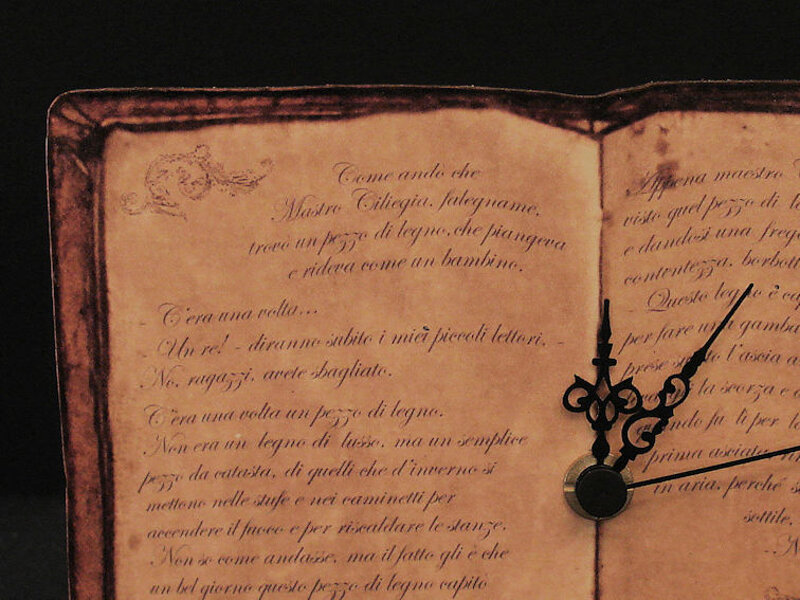 Come andò che
Mastro Ciliegia, falegname,
trovò un pezzo di legno, che piangeva
e rideva come un bambino.
C'era una volta...
- Un re! - diranno subito i miei piccoli lettori. -
No, ragazzi, avete sbagliato.
C'era una volta un pezzo di legno.
Non era un legno di lusso, ma un semplice
pezzo da catasta, di quelli che d'inverno si
mettono nelle stufe e nei caminetti per
accendere il fuoco e per riscaldare le stanze.
Non so come andasse, ma il fatto gli è che
un bel giorno questo pezzo di legno capitò
Appena maestro
visto quel pezzo di
e dandosi una
contentezza, borbott
- Questo legno è
per fare una gamba
prese l'ascia
la scorza e
fu lì per
prima asciata,
in aria, perché
sottile,